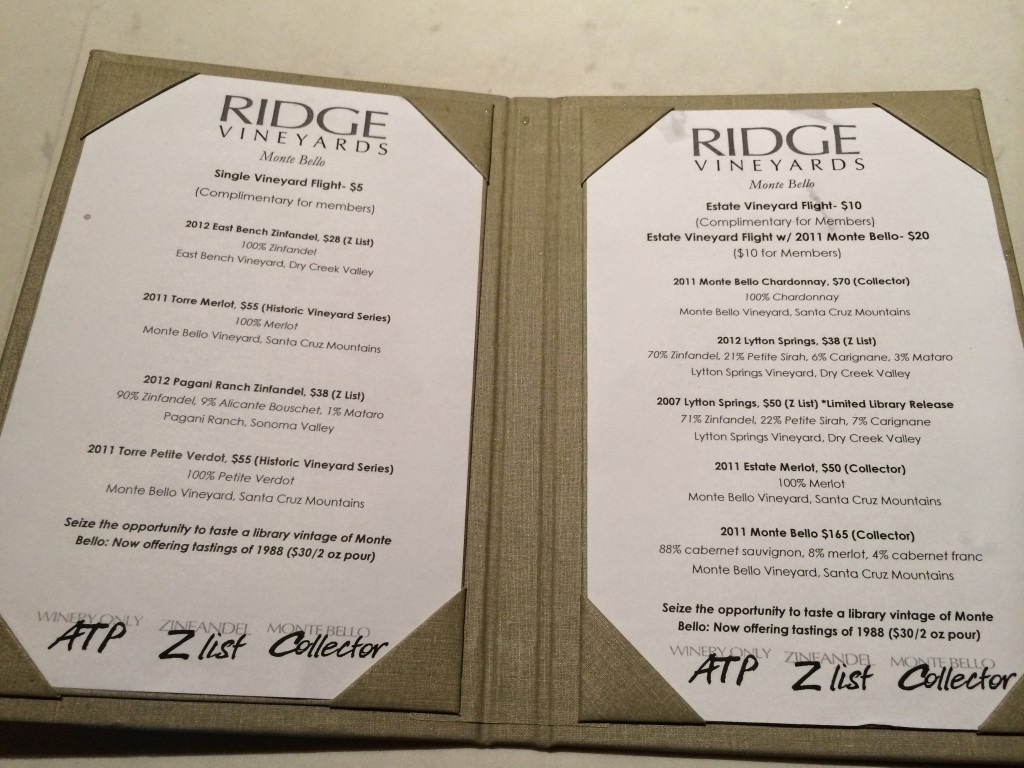 RIDGE
VINEYARDS
Monte Bello
Single Vineyard Flight- $5
(Complimentary for members)
2012 East Bench Zinfandel, $28 (Z List)
100% Zinfandel
East Bench Vineyard, Dry Creek Valley
2011 Torre Merlot, $55 (Historic Vineyard Series)
100% Merlot
Monte Bello Vineyard, Santa Cruz Mountains
2012 Pagani Ranch Zinfandel, $38 (Z List)
90% Zinfandel, 9% Alicante Bouschet, 1% Mataro
Pagani Ranch, Sonoma Valley
2011 Torre Petite Verdot, $55 (Historic Vineyard Series)
100% Petite Verdot
Monte Bello Vineyard, Santa Cruz Mountains
Seize the opportunity to taste a library vintage of Monte
Bello: Now offering tastings of 1988 ($30/2 oz pour)
WINERY ONLY ZINFANDEL MONTE BELLO
ATP Z list Collector
RIDGE
VINEYARDS
Monte Bello
Estate Vineyard Flight- $10
(Complimentary for Members)
Estate Vineyard Flight w/ 2011 Monte Bello- $20
($10 for Members)
2011 Monte Bello Chardonnay, $70 (Collector)
100% Chardonnay
Monte Bello Vineyard, Santa Cruz Mountains
2012 Lytton Springs, $38 (Z List)
70% Zinfandel, 21% Petite Sirah, 6% Carignane, 3% Mataro
Lytton Springs Vineyard, Dry Creek Valley
2007 Lytton Springs, $50 (Z List) *Limited Library Release
71% Zinfandel, 22% Petite Sirah, 7% Carignane
Lytton Springs Vineyard, Dry Creek Valley
2011 Estate Merlot, $50 (Collector)
100% Merlot
Monte Bello Vineyard, Santa Cruz Mountains
2011 Monte Bello $165 (Collector)
88% cabernet sauvignon, 8% merlot, 4% cabernet franc
Monte Bello Vineyard, Santa Cruz Mountains
Seize the opportunity to taste a library vintage of Monte
Bello: Now offering tastings of 1988 ($30/2 oz pour)
WINERY ONLY ZINFANDEL MONTE BELLO
ATP Z list Collector